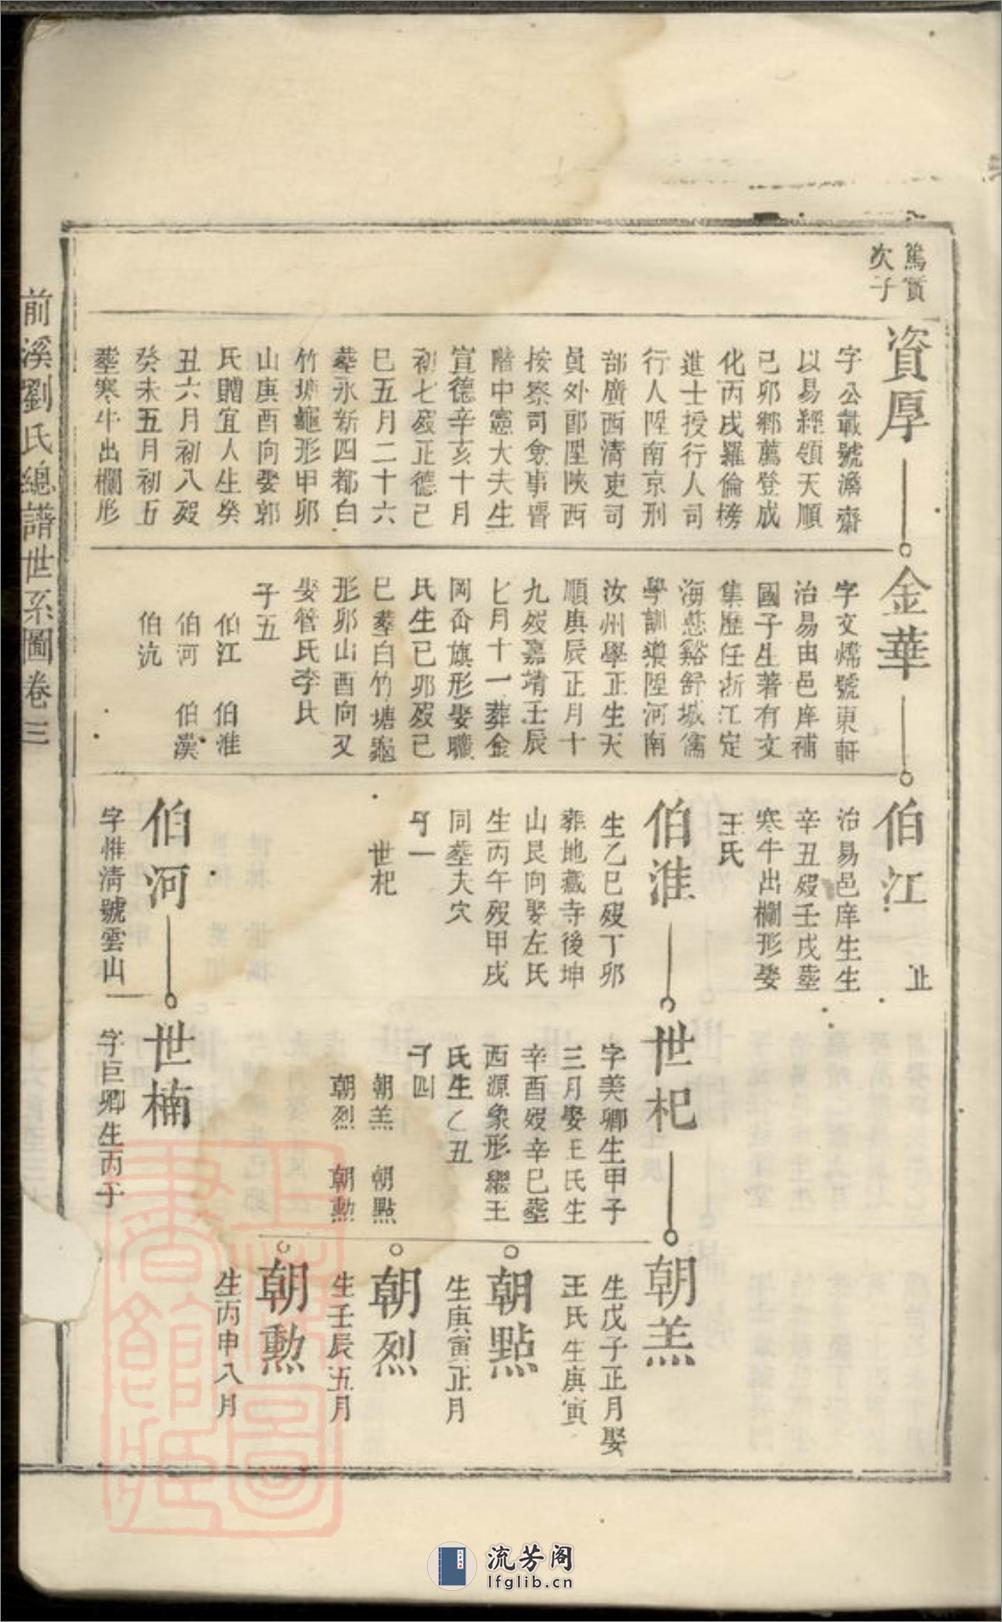 前溪劉氏總譜世系圖卷三
篤實
次子
資厚
字公載號濟齋
以易經領天順
己卯鄉薦登成
化丙戌羅倫榜
進士授行人司
行人陞南京刑
部廣西清吏司
員外郎陞陝西
按察司僉事晋
階中憲大夫生
宣德辛亥十月
初七歿正德己
巳五月二十六
塟永新四都白
竹塘龜形甲卯
山庚酉向娶郭
氏贈宜人生癸
丑六月初八歿
癸未五月初五
塟寒牛出欄形
金華
字文燏號東軒
治易由邑庠補
國子生著有文
集歷任浙江定
海慈谿舒城儒
學訓導陞河南
汝州學正生天
順庚辰正月十
九歿嘉靖壬辰
七月十一葬金
岡畓旗形娶曠
氏生己卯歿己
巳塟白竹塘龜
形卯山酉向又
娶管氏李氏
子五
伯江 伯淮
伯河 伯漢
伯沆
伯江 止
治易邑庠生生
辛丑歿壬戌塟
寒牛出欄形娶
王氏
伯淮
生乙巳歿丁卯
葬地藏寺後坤
山艮向娶左氏
生丙午歿甲戌
同塟夫穴
子一
世杞
世杞
字美卿生甲子
三月娶王氏生
辛酉歿辛巳塟
西源象形繼王
氏生乙丑
子四
朝羔 朝點
朝烈 朝勳
朝羔
生戊子正月娶
王氏生庚寅
朝點
生庚寅正月
朝烈
生壬辰五月
朝勳
生丙申八月
伯河
字惟清號雲山
世楠
字巨卿生丙子
流芳阁
lfglib.cn